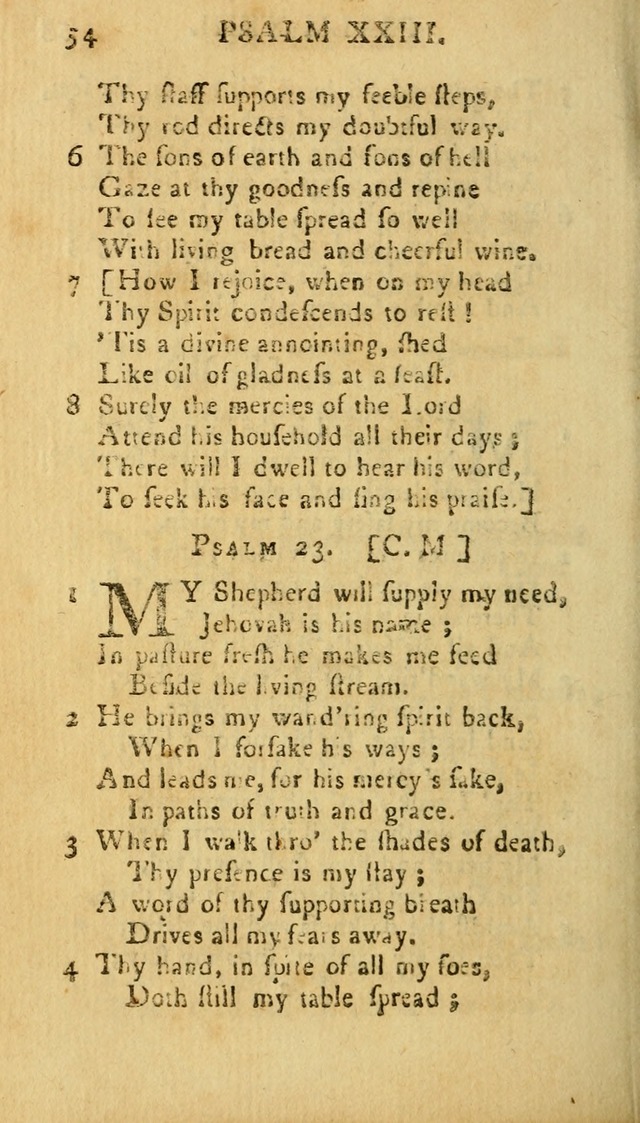 54 PSALM XXIII.
Thy ſtaff ſupports my feeble ſteps,
Thy rod directs my doubtful way.
6 The ſons of earth and ſons of hell
Gaze at thy goodneſs and repine
To ſee my table ſpread ſo well
With living bread and cheerful wine.
7 [How I rejoice, when on my head
Thy Spirit condeſcends to reſt !
'Tis a divine annointing, ſhed
Like oil of gladneſs at a feaſt.
8 Surely the mercies of the Lord
Attend his houſehold all their days ;
There will I dwell to hear his word,
To ſeek his face and ſing his praiſe.]
PSALM 23. [C. M ]
1 MY Shepherd will ſupply my need,
Jehovah is his name ;
In paſture freſh he makes me feed
Beſide the living ſtream.
2 He brings my wand'ring ſpirit back,
When I forſake his ways ;
And leads me, for his mercy's ſake,
In paths of truth and grace.
3 When I walk thro' the ſhades of death,
Thy preſence is my ſtay ;
A word of thy ſupporting breath
Drives all my fears away.
4 Thy hand, in ſpite of all my foes,
Doth ſtill my table ſpread ;